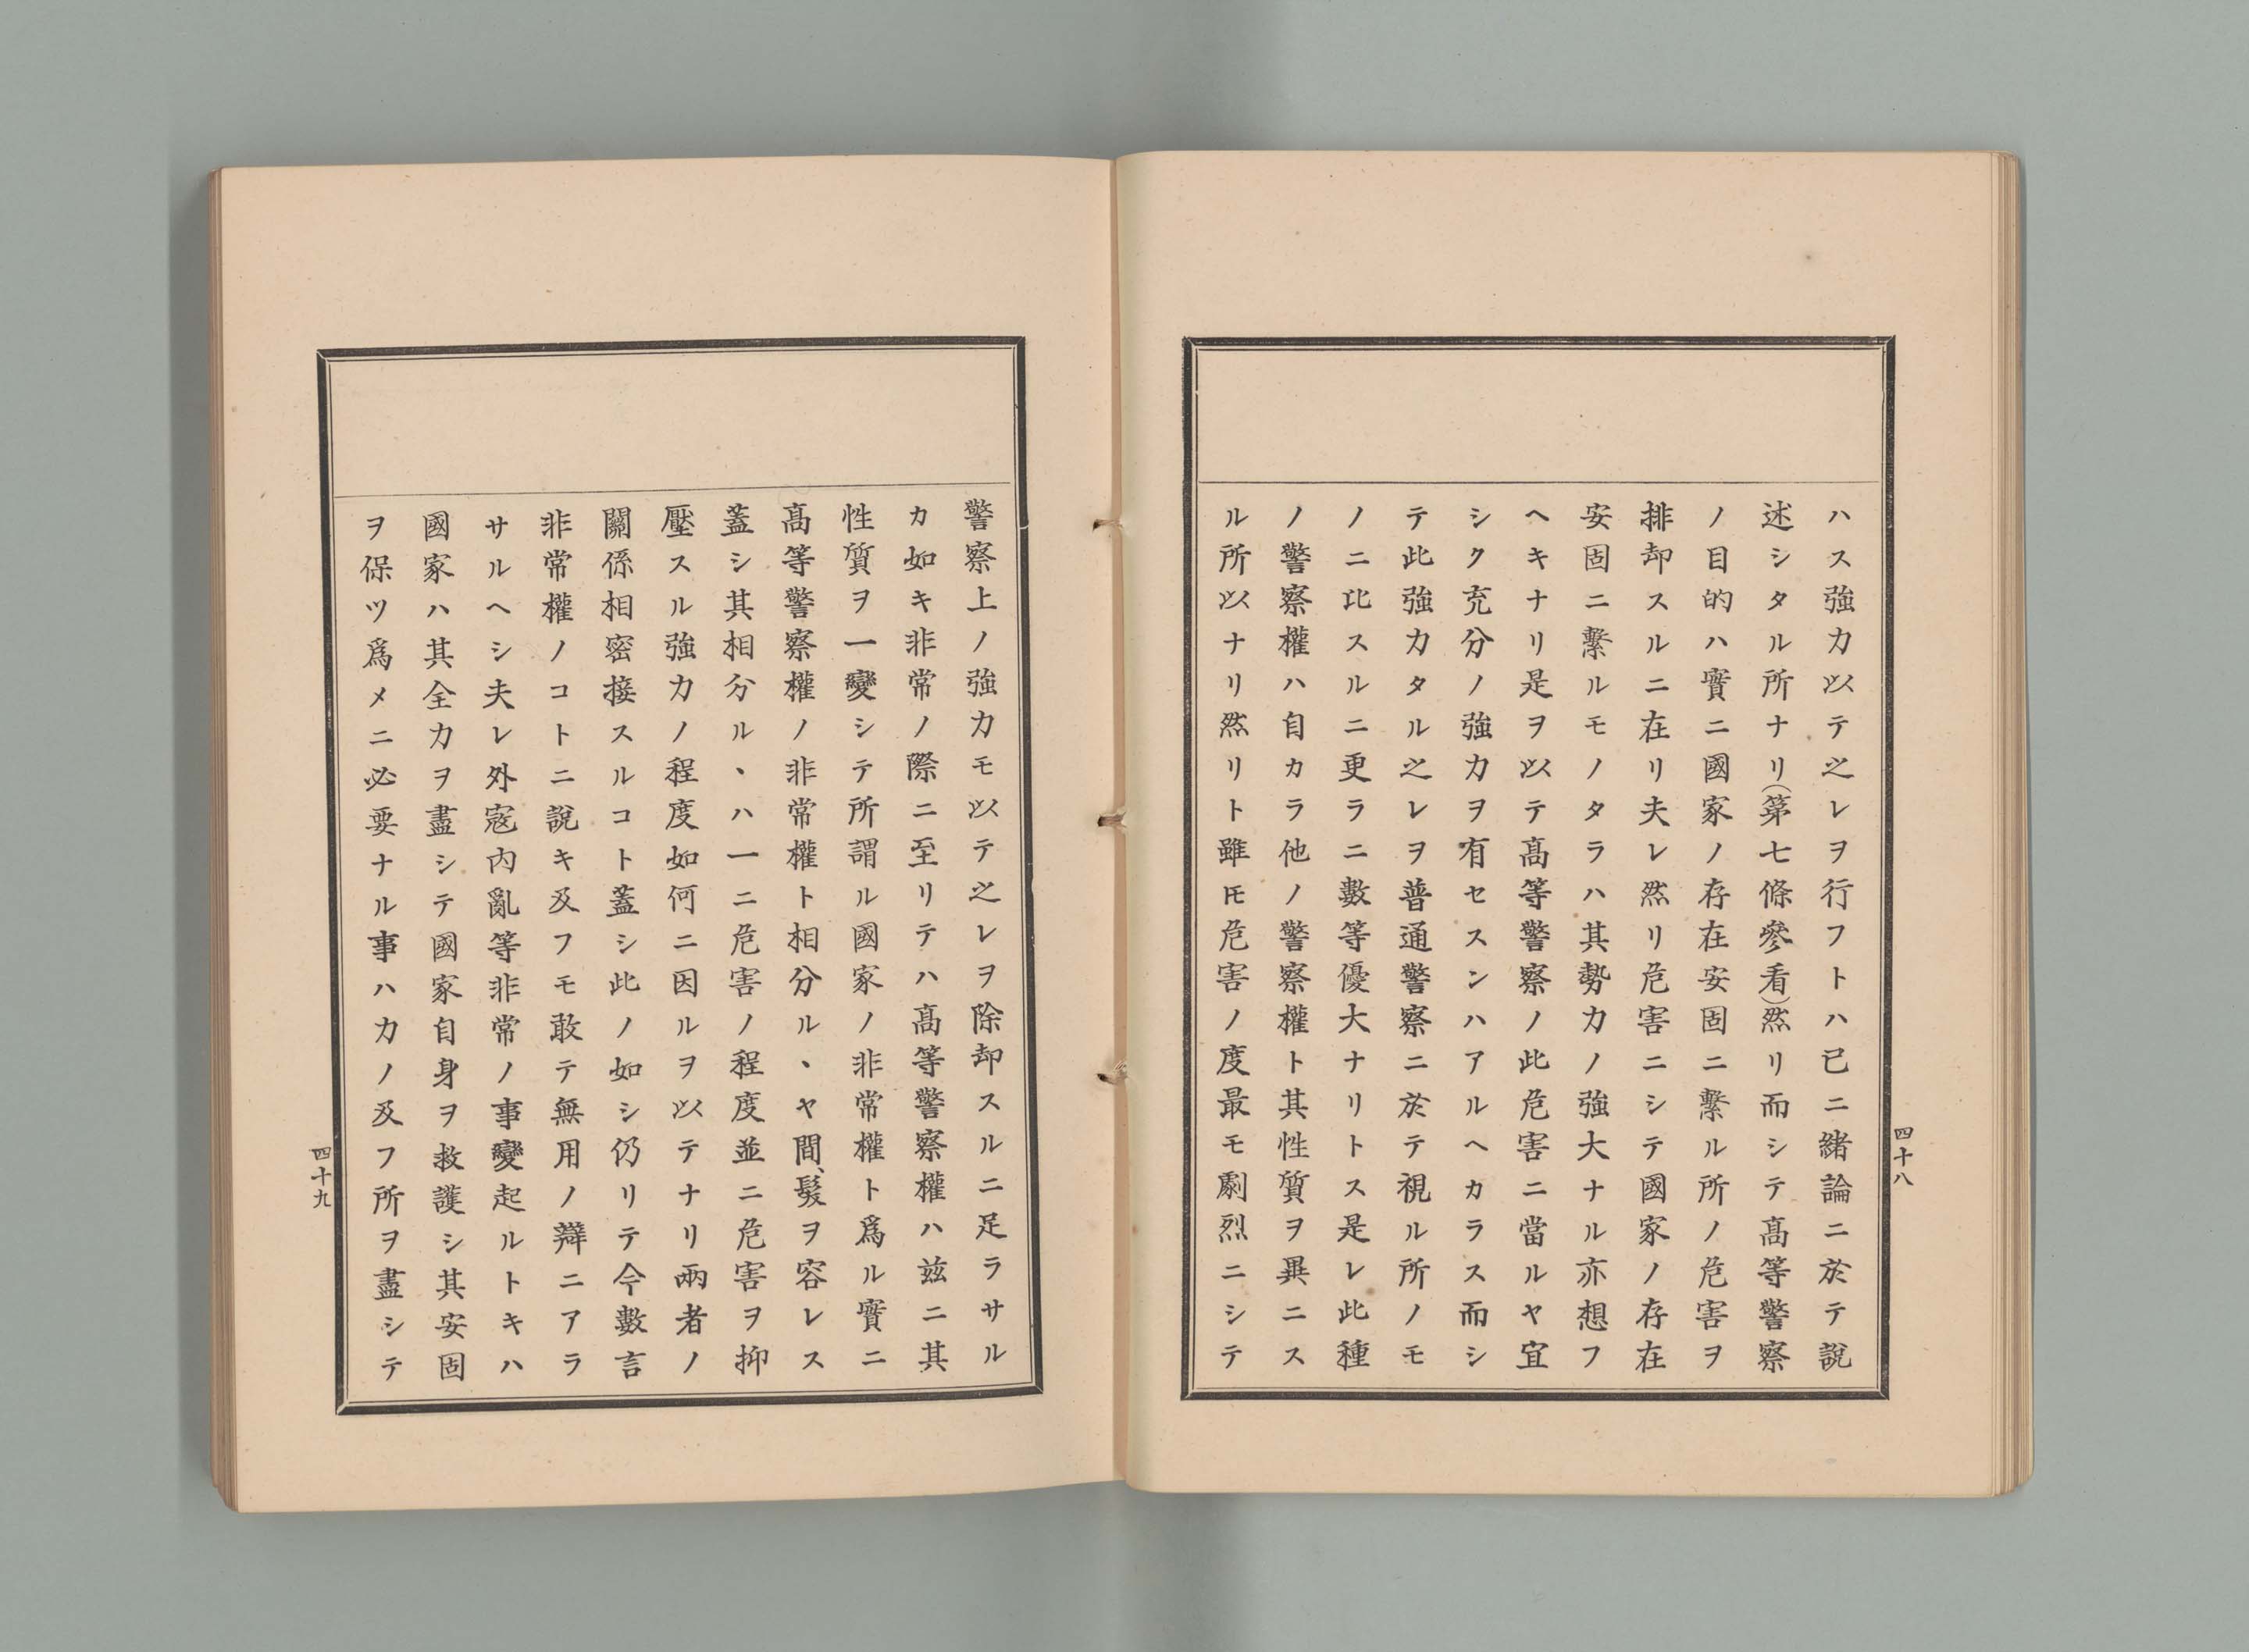 ハス強力以テ之レヲ行フトハ已ニ緒論ニ於テ說
述シタル所ナリ(第七條參看)然リ而シテ高等警察
ノ目的ハ實ニ國家ノ存在安固ニ繫ル所ノ危害ヲ
排却スルニ在リ夫レ然リ危害ニシテ國家ノ存在
安固ニ繫ルモノタラハ其勢力ノ強大ナル亦想フ
ヘキナリ是ヲ以テ高等警察ノ此危害ニ當ルヤ宜
シク充分ノ強力ヲ有セスンハアルヘカラス而シ
テ此強力タル之レヲ普通警察ニ於テ視ル所ノモ
ノニ比スルニ更ラニ數等優大ナリトス是レ此種
ノ警察權ハ自カラ他ノ警察權ト其性質ヲ異ニス
ル所以ナリ然リト雖𪜈危害ノ度最モ劇烈ニシテ
四十八
警察上ノ強力モ以テ之レヲ除却スルニ足ラサル
カ如キ非常ノ際ニ至リテハ高等警察權ハ玆ニ其
性質ヲ一變シテ所謂ル國家ノ非常權ト爲ル實ニ
高等警察權ノ非常權ト相分ル、ヤ間、髮ヲ容レス
蓋シ其相分ル、ハ一ニ危害ノ程度並ニ危害ヲ抑
壓スル強力ノ程度如何ニ因ルヲ以テナリ兩者ノ
關係相密接スルコト蓋シ此ノ如シ仍リテ今數言
非常權ノコトニ說キ及フモ敢テ無用ノ辯ニアラ
サルヘシ夫レ外寇內亂等非常ノ事變起ルトキハ
國家ハ其全力ヲ盡シテ國家自身ヲ救護シ其安固
ヲ保ツ爲メニ必要ナル事ハ力ノ及フ所ヲ盡シテ
四十九